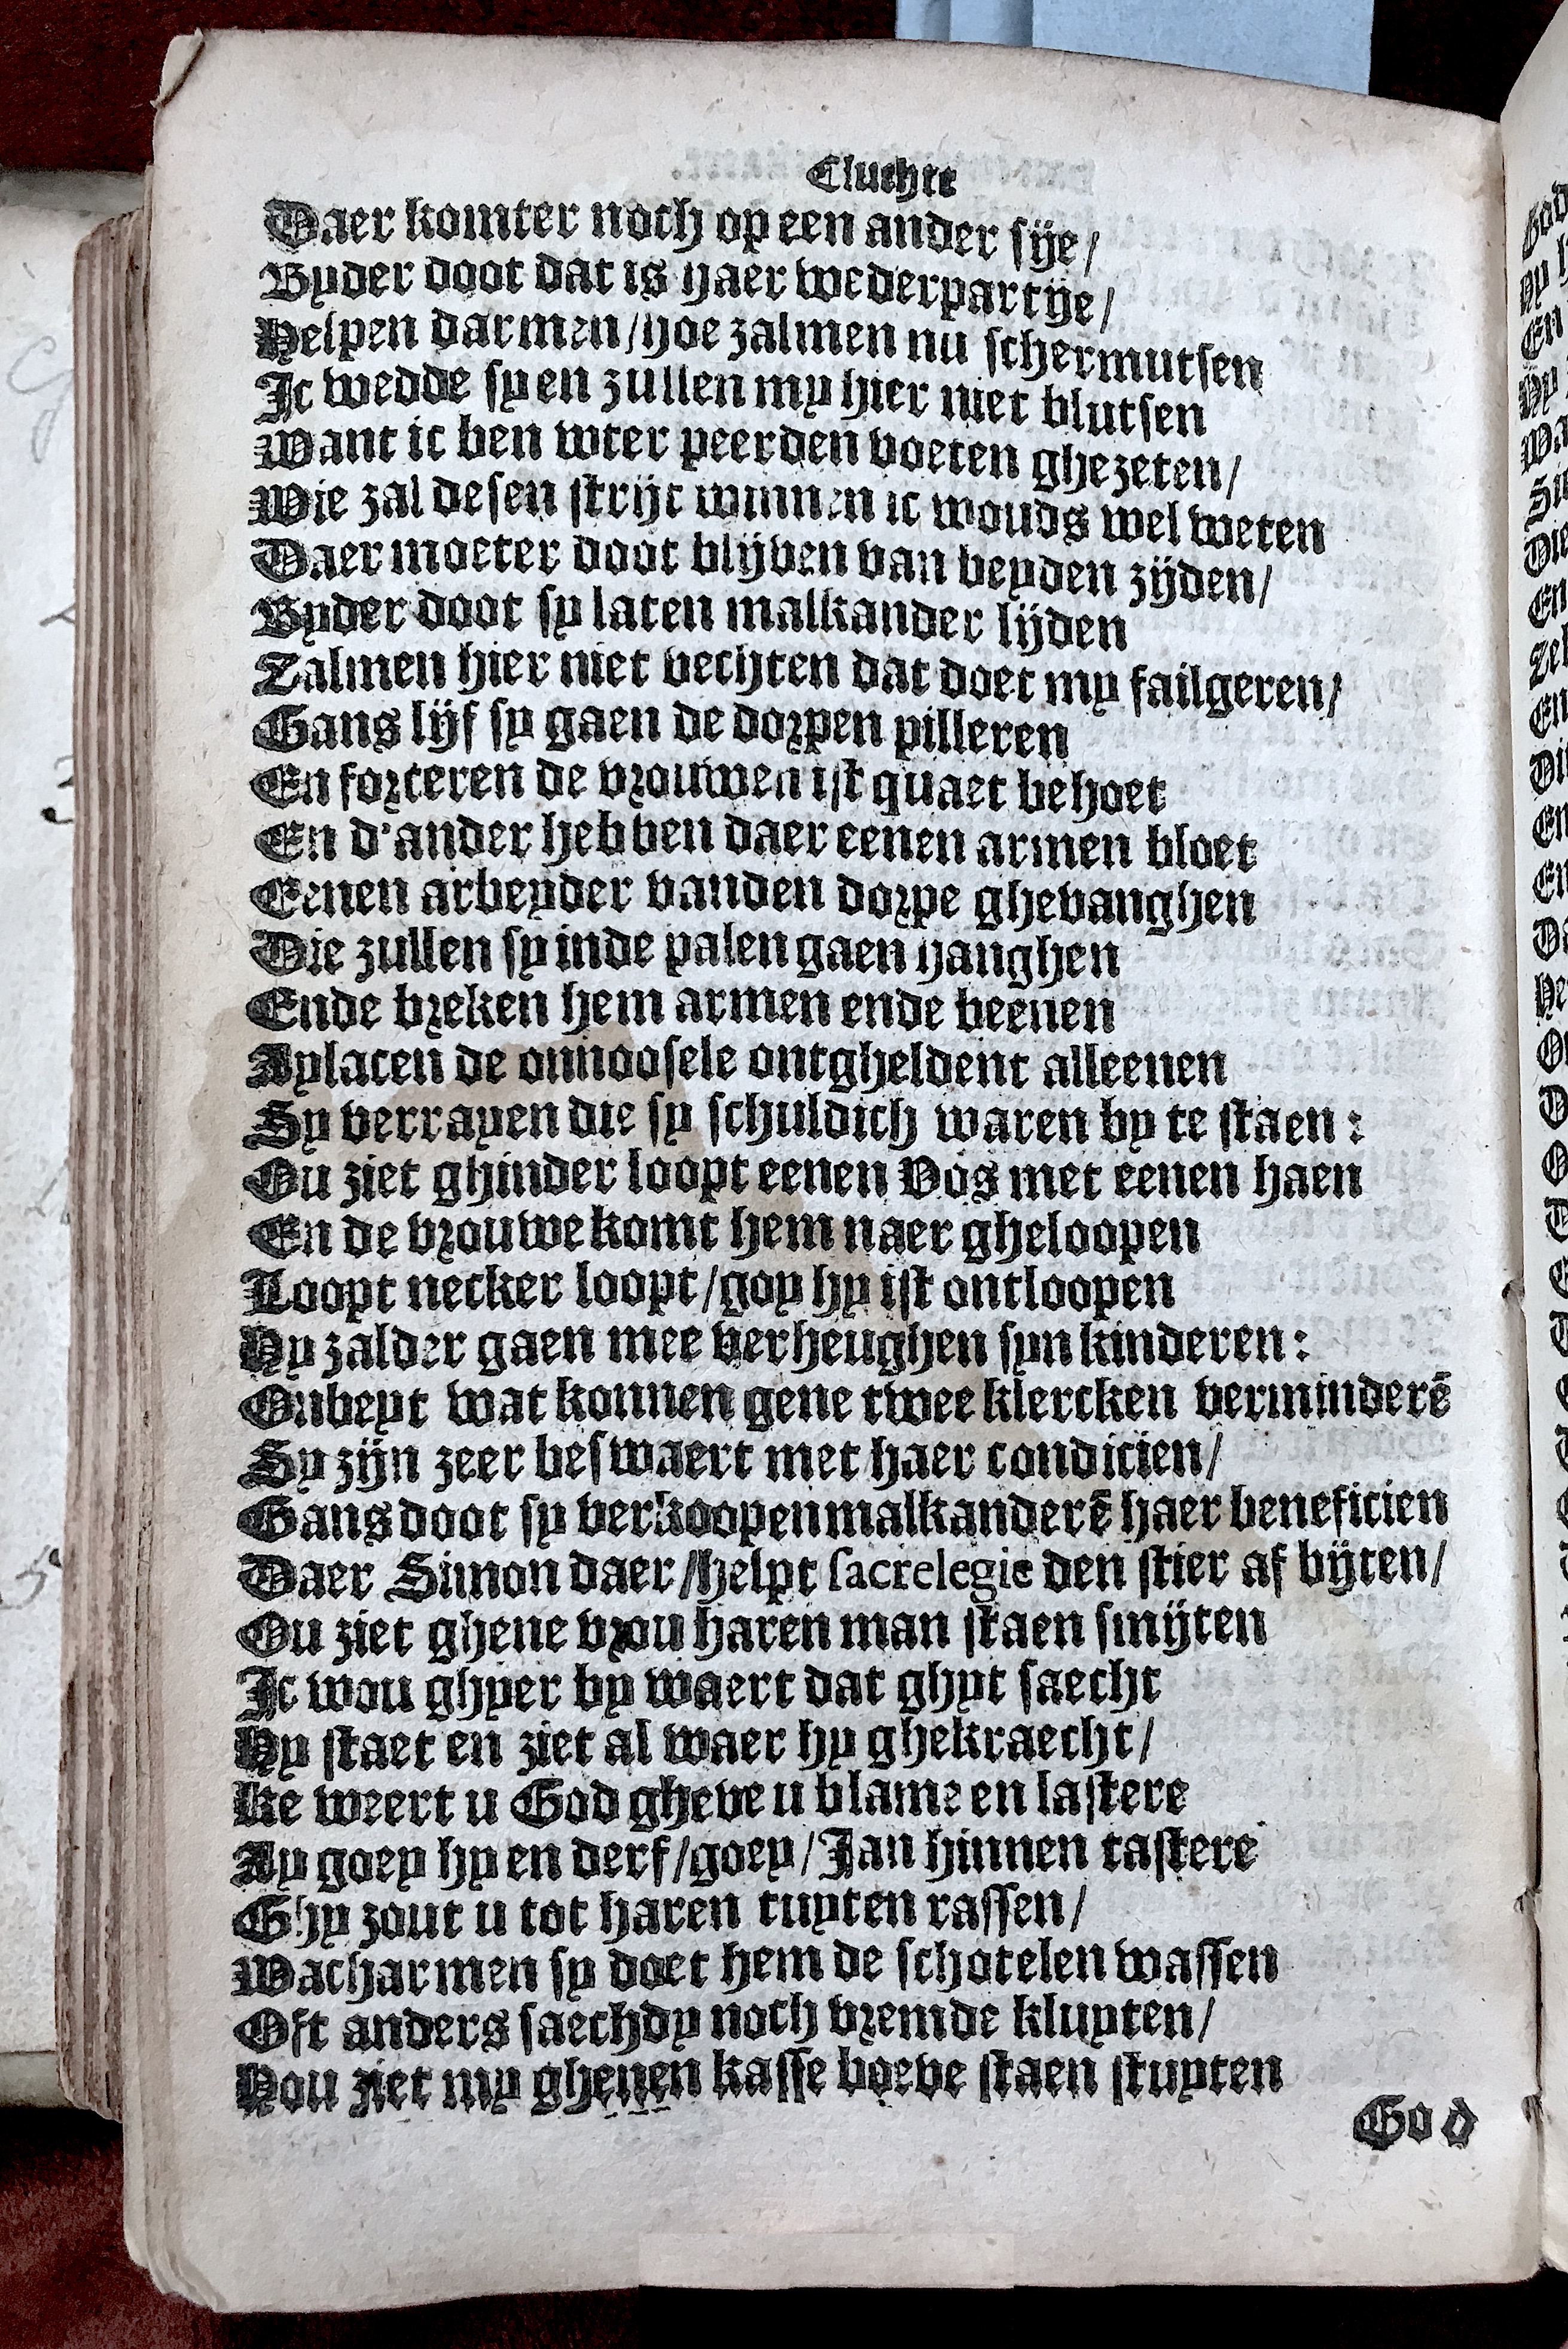 Cluchte
Daer komter noch op een ander sije/
Byder doot dat is haer wederpartije/
Helpen darmen/hoe zalmen nu schermutsen
Ic wedde sy en zullen my hier niet blutsen
Want ic ben wter peerden voeten ghezeten/
Wie zal desen strijt winnen ic wouds wel weten
Daer moeter doot blijven van beyden zijden/
Byder doot sy laten malkander lijden
Zalmen hier niet vechten dat doet my failgeren/
Gans lijf sy gaen de dorpen pilleren
En forteren de vrouwen ist quaet behoet
En d'ander hebben daer eenen armen bloet
Eenen arbeyder vanden dorpe ghevanghen
Die zullen sy inde palen gaen hanghen
Ende breken hem armen ende beenen
Aylacen de onnoosele ontgheldent alleenen
Sy verrayen die sy schuldich waren by te staen:
Ou ziet ghinder loopt eenen Vos met eenen haen
En de vrouwe komt hem naer gheloopen
Loopt necker loopt/goy hy ist ontloopen
Hy zalder gaen mee verheughen syn kinderen:
Onbeyt wat konnen gene twee klercken verminderē
Sy zijn zeer beswaert met haer condicien/
Gans doot sy verkoopen malkanderē haer beneficien
Daer Simon daer/helpt sacrelegie den stier af bijten/
Ou ziet ghene vrou haren man staen smijten
Ic wou ghyer by waert dat ghyt saecht
Hy staet en ziet al waer hy ghekraecht/
Ke weert u God gheve u blame en lastere
Ay goey hy en derf/goey/Jan hinnen tastere
Ghy zout u tot haren tuyten rassen/
Wacharmen sy doet hem de schotelen wassen
Oft anders saechdy noch vremde kluyten/
Nou ziet my ghenen kasse boeve staen stuyten
God